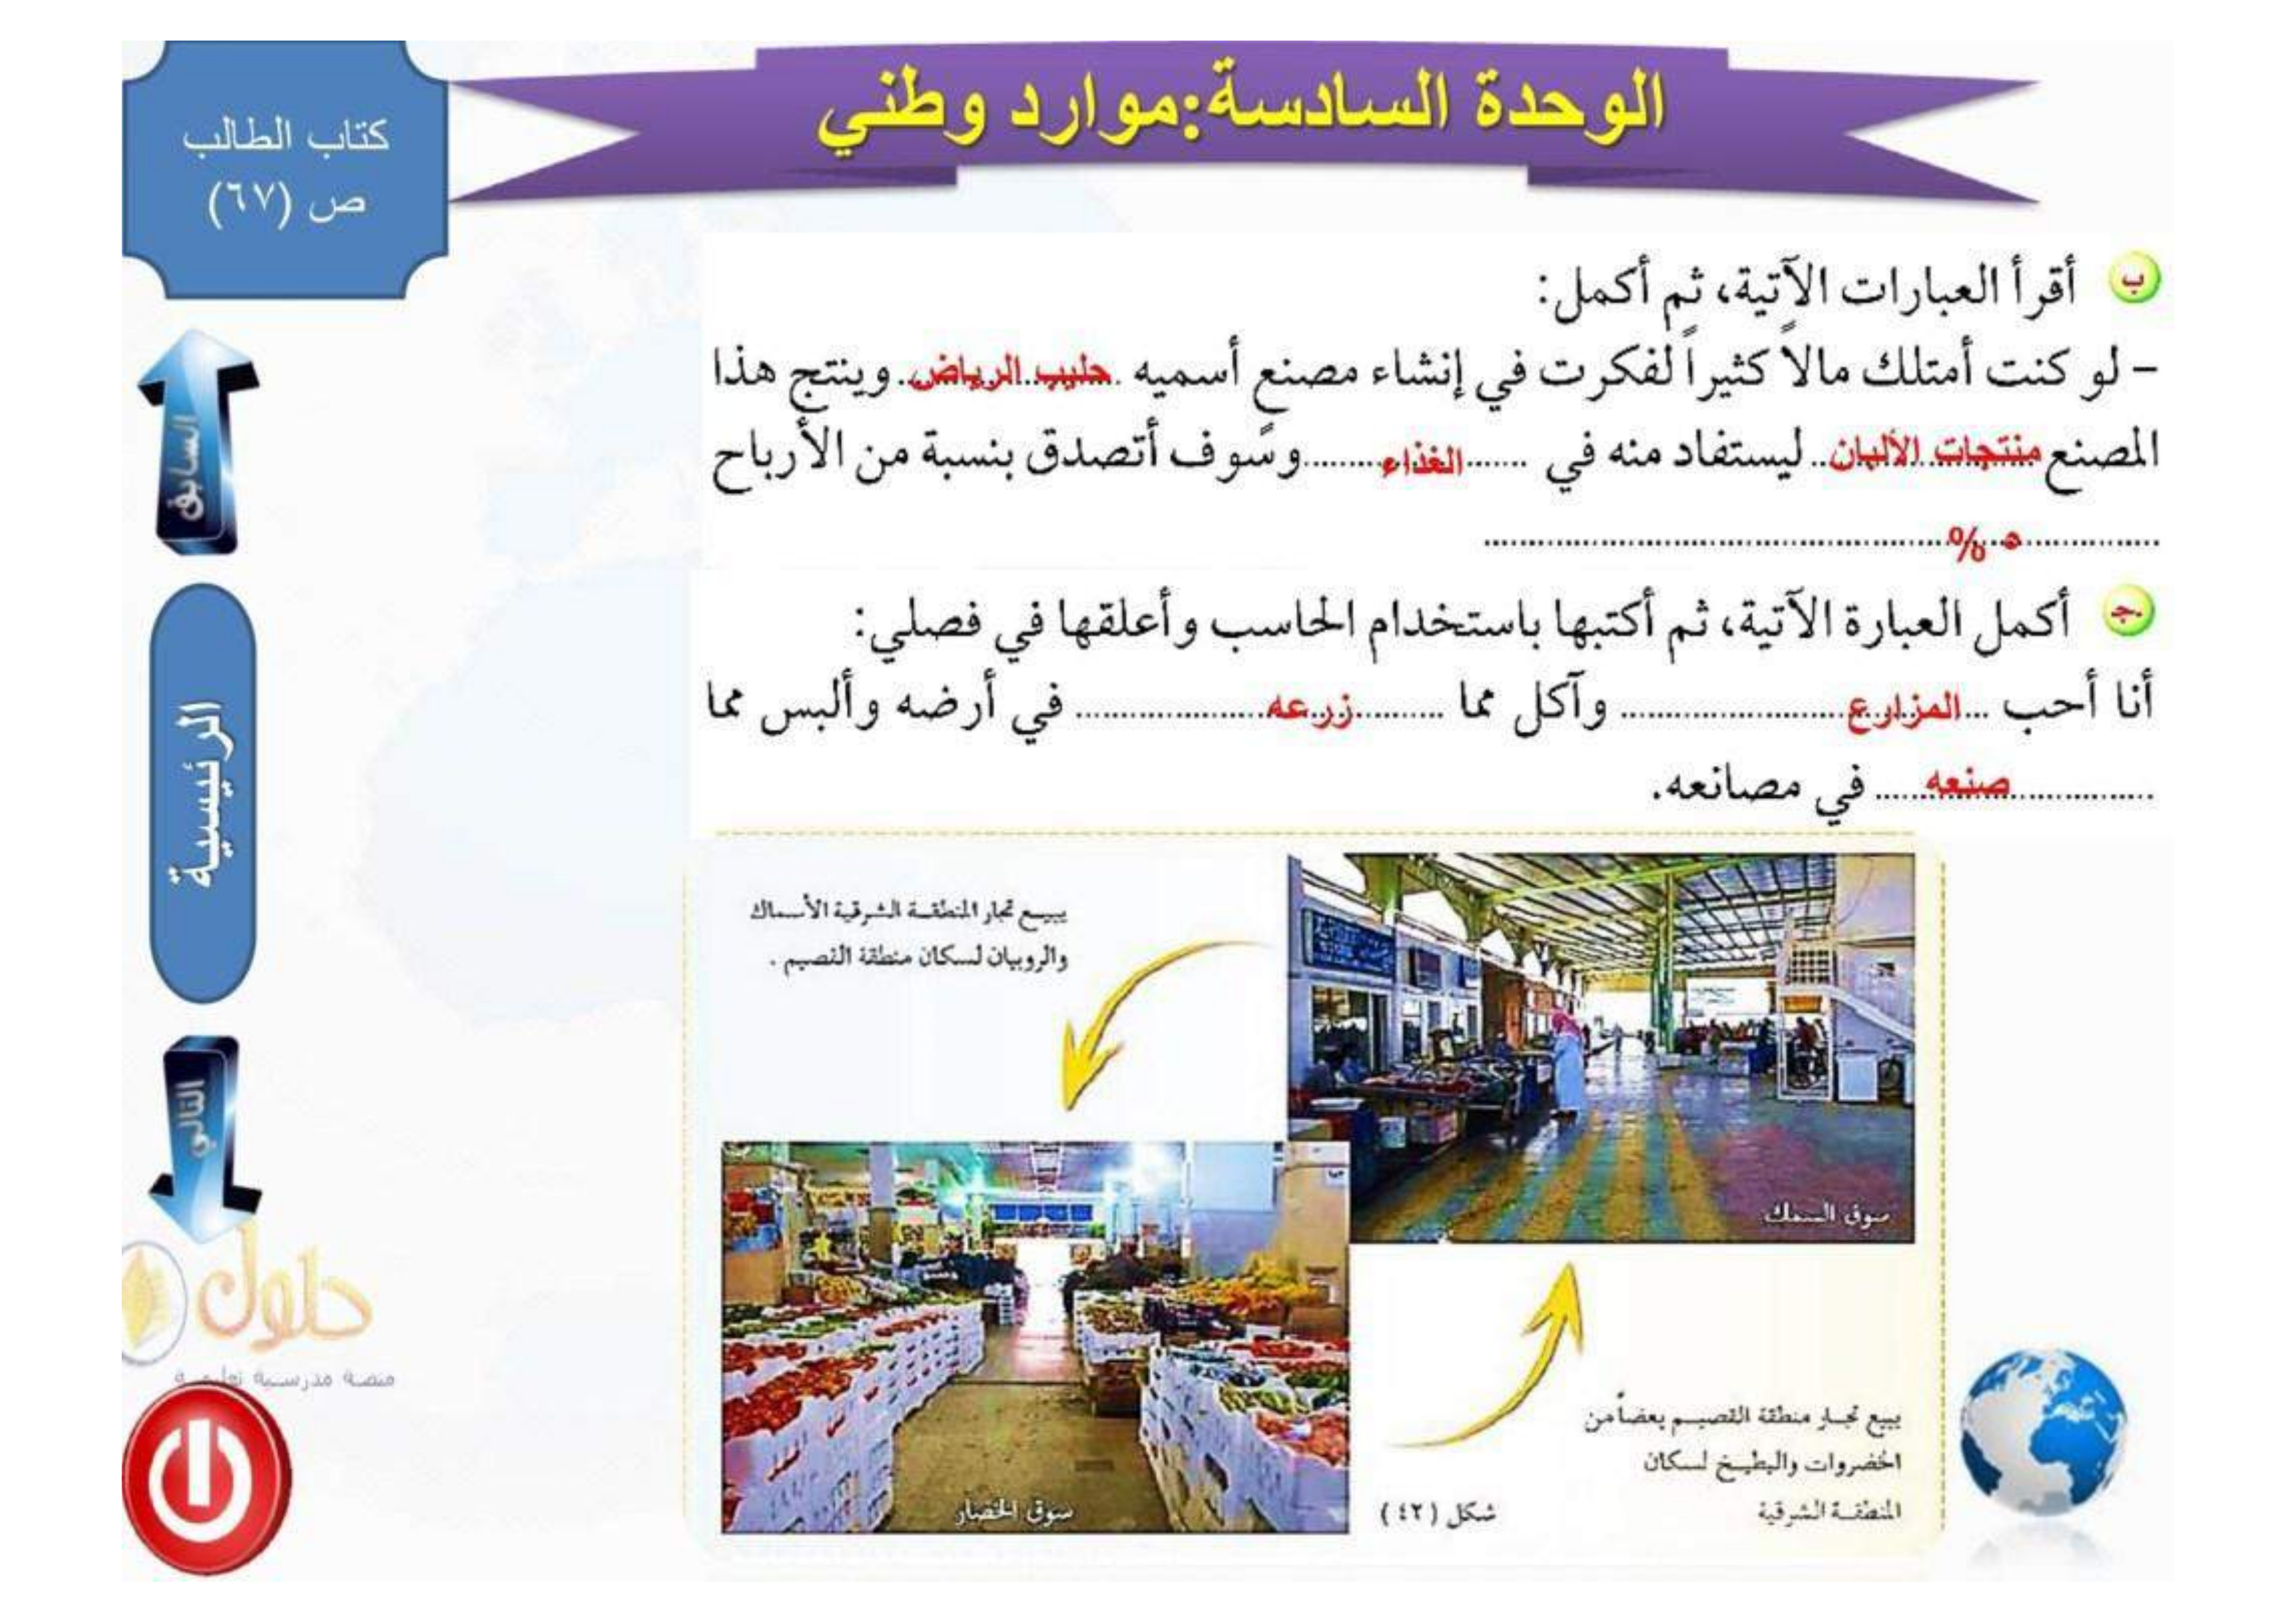 الوحدة السادسة:موارد وطني
كتاب الطالب
ص (٦٧)
ب أقرأ العبارات الآتية، ثم أكمل:
– لو كنت أمتلك مالاً كثيراً لفكرت في إنشاء مصنع أسميه .حليب الرياض. وينتج هذا
المصنع منتجات الألبان.. ليستفاد منه في .......الغذاء.......... وسوف أتصدق بنسبة من الأرباح
..............٥ %..............................................
جـ أكمل العبارة الآتية، ثم أكتبها باستخدام الحاسب وأعلقها في فصلي:
أنا أحب ...المزارع........................ وآكل مما ..........زرعه.................... في أرضه وألبس مما
................صنعه...... في مصانعه.
السابق
الرئيسية
التالي
يبيع تجار المنطقة الشرقية الأسماك
والروبيان لسكان منطقة القصيم .
سوق السمك
سوق الخضار
يبيع تجار منطقة القصيم بعضاً من
الخضروات والبطيخ لسكان
المنطقة الشرقية
شكل (٤٢)
حلول
منصة مدرسية تعليمية